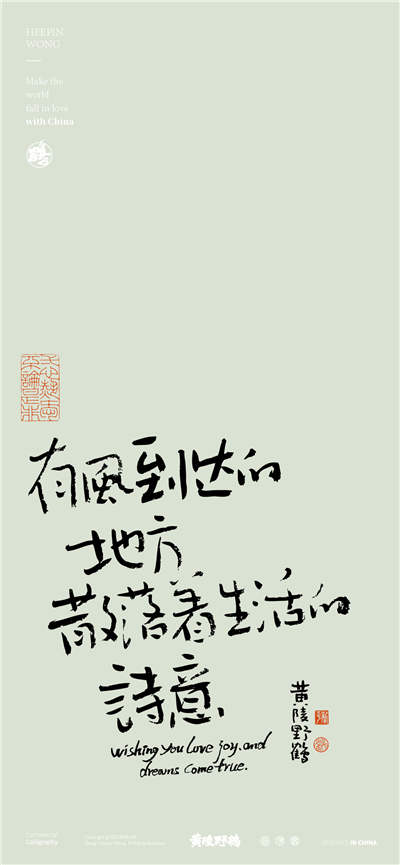 HEEPIN
WONG
Make the
world
fall in love
with China
有風到达的
地方
散落着生活的
詩意
wishing you love joy.and
dreams come true.
黄陵野鶴
黄陵野鶴
Calligraphy
IN CHINA